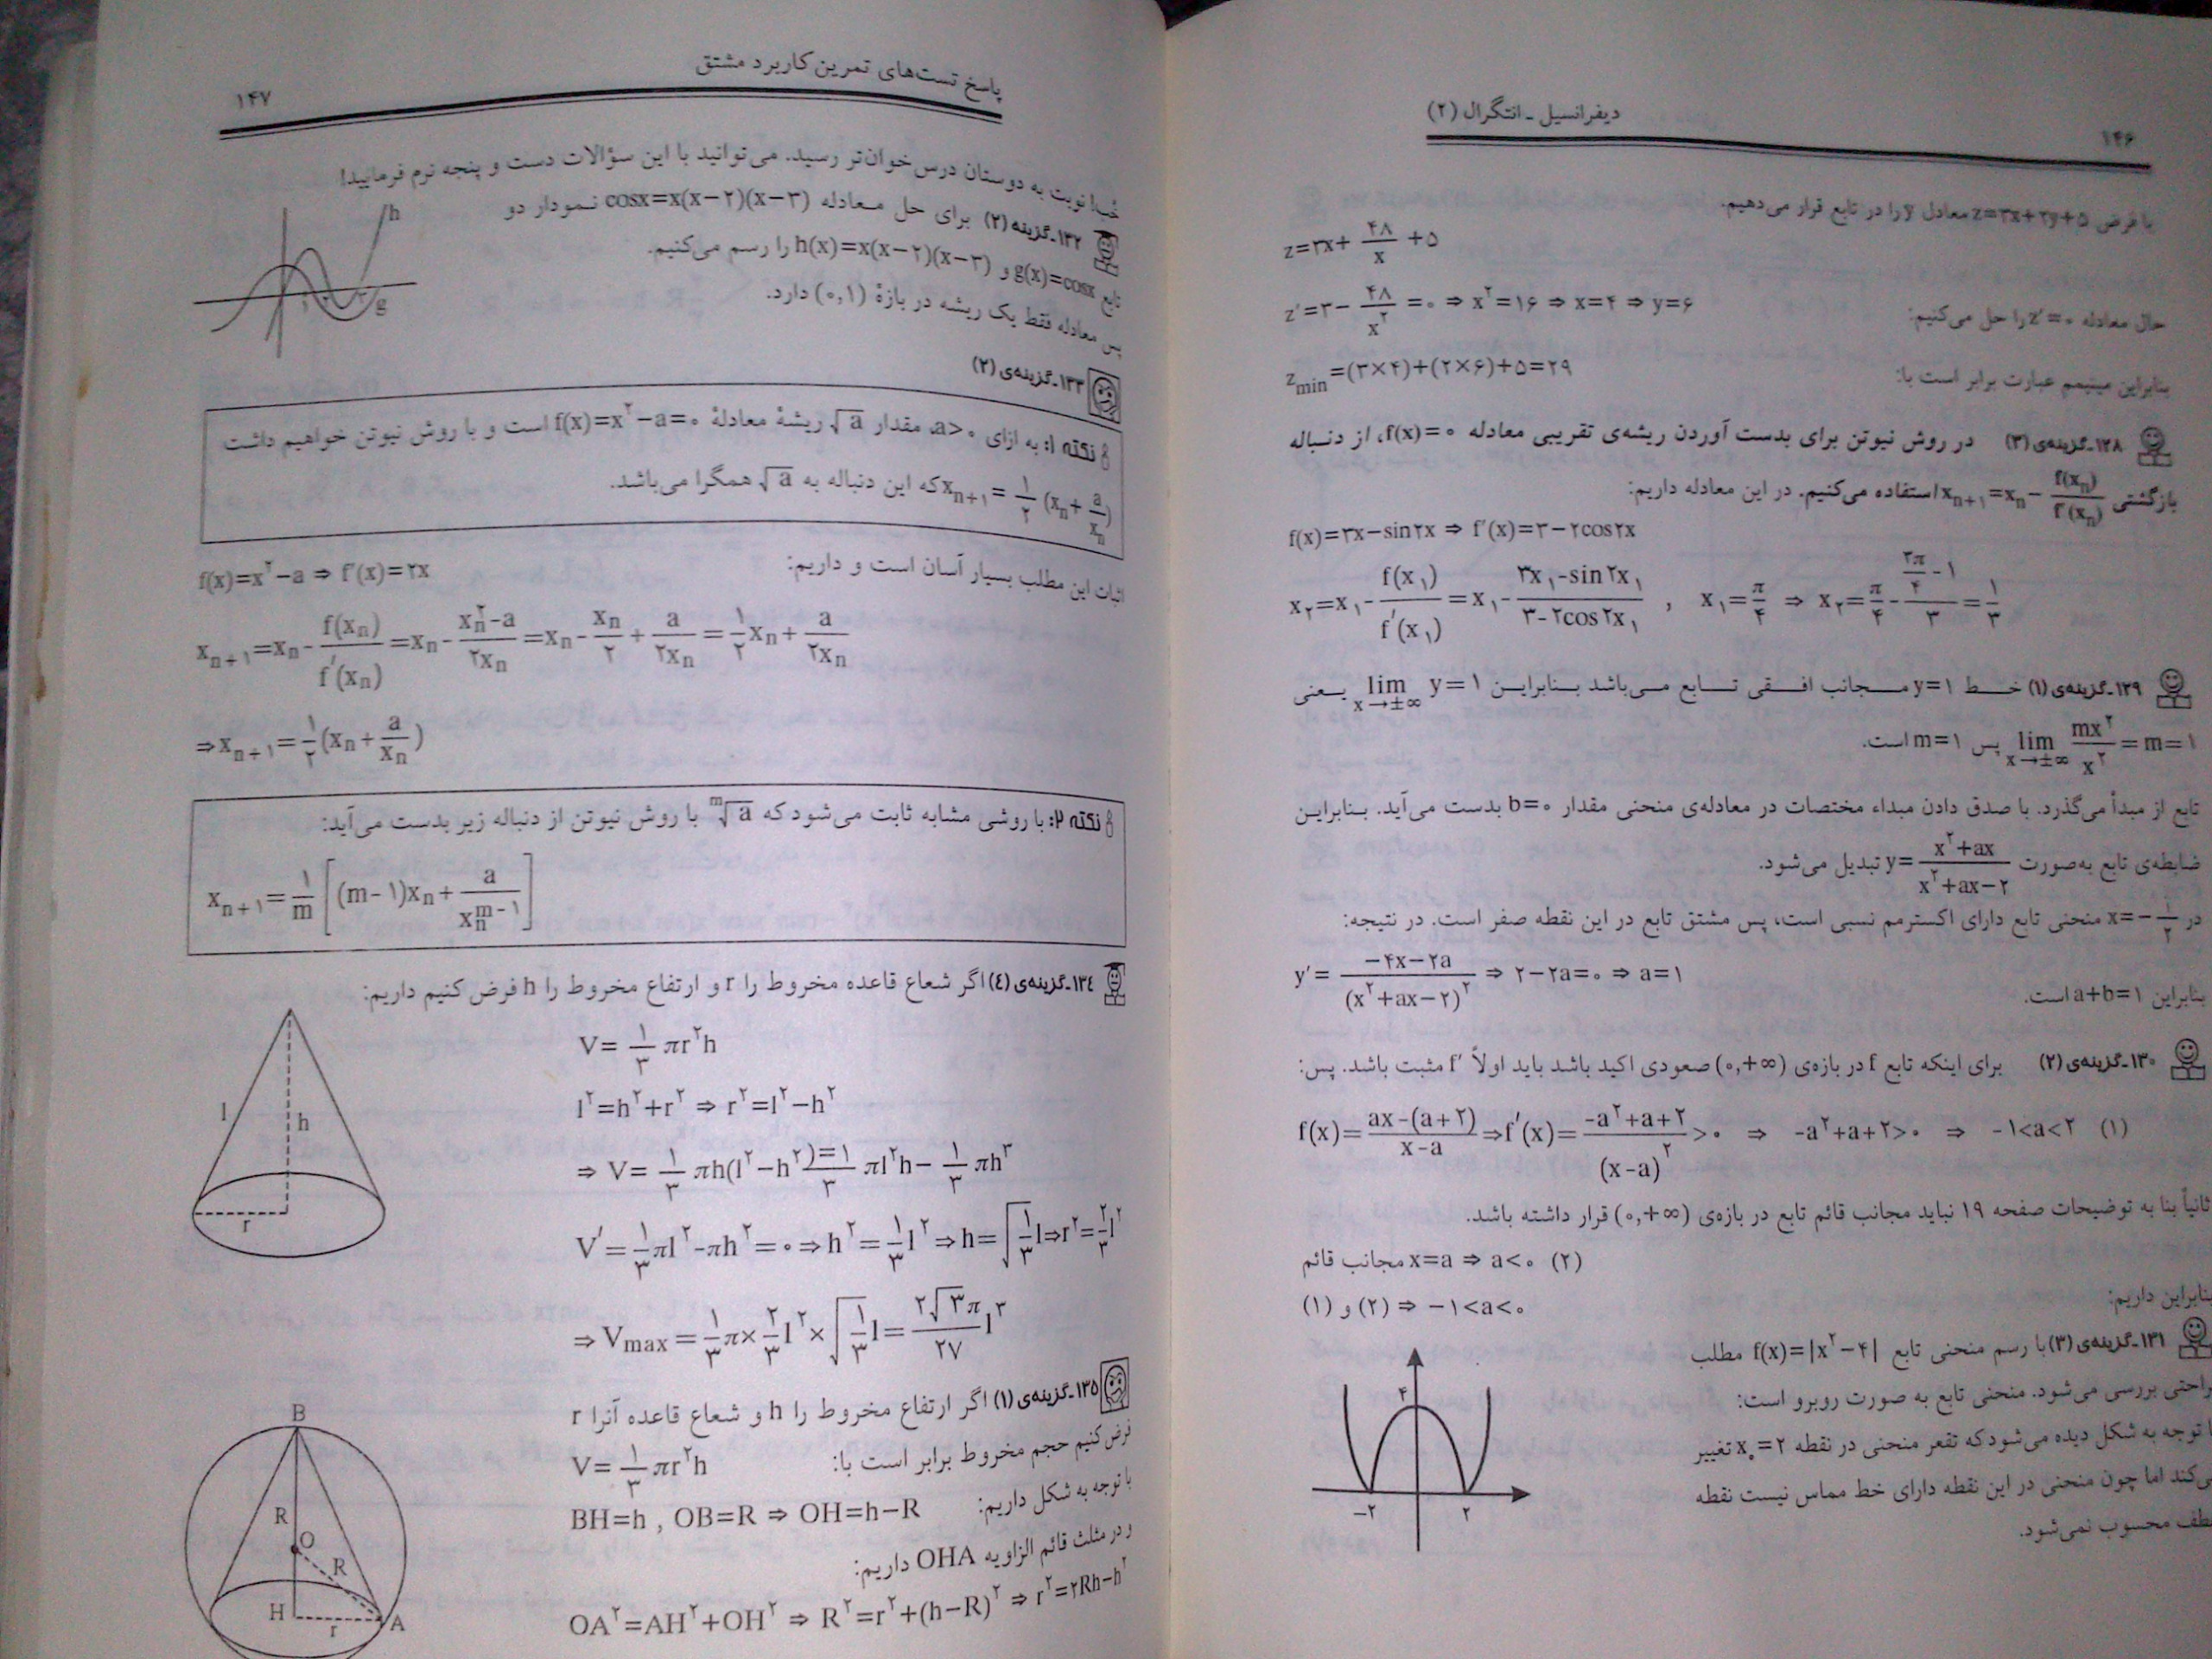 دیفرانسیل ـ انتگرال (۲)
۱۴۶
با فرض z=۳x+۲y+۵ معادل y را در تابع قرار می‌دهیم.
z=۳x+ ۴۸/x +۵
حال معادله z′=۰ را حل می‌کنیم:
z′=۳− ۴۸/x² =۰ ⇒ x²=۱۶ ⇒ x=۴ ⇒ y=۶
بنابراین مینیمم عبارت برابر است با:
z min =(۳×۴)+(۲×۶)+۵=۲۹
۱۲۸ـ گزینه‌ی (۳) در روش نیوتن برای بدست آوردن ریشه‌ی تقریبی معادله f(x)=۰، از دنباله
بازگشتی xₙ₊₁=xₙ− f(xₙ)/f′(xₙ) استفاده می‌کنیم. در این معادله داریم:
f(x)=۳x−sin۲x ⇒ f′(x)=۳−۲cos۲x
x₂=x₁− f(x₁)/f′(x₁) =x₁− (۳x₁−sin۲x₁)/(۳−۲cos۲x₁) , x₁=π/۴ ⇒ x₂=π/۴ − (۳π/۴ −۱)/۳ = ۱/۳
۱۲۹ـ گزینه‌ی (۱) خط y=۱ مجانب افقی تابع می‌باشد بنابراین lim x→±∞ y=۱ یعنی
lim x→±∞ mx²/x² =m=۱ پس m=۱ است.
تابع از مبدأ می‌گذرد. با صدق دادن مبداء مختصات در معادله‌ی منحنی مقدار b=۰ بدست می‌آید. بنابراین
ضابطه‌ی تابع به‌صورت y= (x²+ax)/(x²+ax−۲) تبدیل می‌شود.
در x=− ۱/۲ منحنی تابع دارای اکسترمم نسبی است، پس مشتق تابع در این نقطه صفر است. در نتیجه:
y′= (−۴x−۲a)/(x²+ax−۲)² ⇒ ۲−۲a=۰ ⇒ a=۱
بنابراین a+b=۱ است.
۱۳۰ـ گزینه‌ی (۲) برای اینکه تابع f در بازه‌ی (۰,+∞) صعودی اکید باشد باید اولاً f′ مثبت باشد. پس:
f(x)= (ax−(a+۲))/(x−a) ⇒ f′(x)= (−a²+a+۲)/(x−a)² >۰ ⇒ −a²+a+۲>۰ ⇒ −۱<a<۲ (۱)
ثانیاً بنا به توضیحات صفحه ۱۹ نباید مجانب قائم تابع در بازه‌ی (۰,+∞) قرار داشته باشد.
مجانب قائم x=a ⇒ a<۰ (۲)
بنابراین داریم:
(۱) و (۲) ⇒ −۱<a<۰
۱۳۱ـ گزینه‌ی (۳) با رسم منحنی تابع f(x)=|x²−۴| مطلب
راحتی بررسی می‌شود. منحنی تابع به صورت روبرو است:
با توجه به شکل دیده می‌شود که تقعر منحنی در نقطه x₀=۲ تغییر
می‌کند اما چون منحنی در این نقطه دارای خط مماس نیست نقطه
عطف محسوب نمی‌شود.
۴
−۲ ۲
پاسخ تست‌های تمرین کاربرد مشتق
۱۴۷
خب! نوبت به دوستان درس‌خوان‌تر رسید. می‌توانید با این سؤالات دست و پنجه نرم فرمایید!
۱۳۲ـ گزینه (۲) برای حل معادله cosx=x(x−۲)(x−۳) نمودار دو
تابع g(x)=cosx و h(x)=x(x−۲)(x−۳) را رسم می‌کنیم.
پس معادله فقط یک ریشه در بازهٔ (۰,۱) دارد.
h
g
۱۳۳ـ گزینه‌ی (۲)
نکته ۱: به ازای a>۰، مقدار √a ریشهٔ معادلهٔ f(x)=x²−a=۰ است و با روش نیوتن خواهیم داشت
xₙ₊₁= ۱/۲ (xₙ+ a/xₙ) که این دنباله به √a همگرا می‌باشد.
اثبات این مطلب بسیار آسان است و داریم:
f(x)=x²−a ⇒ f′(x)=۲x
xₙ₊₁=xₙ− f(xₙ)/f′(xₙ) =xₙ− (xₙ²−a)/۲xₙ =xₙ− xₙ/۲ + a/۲xₙ = ۱/۲ xₙ+ a/۲xₙ
⇒xₙ₊₁= ۱/۲ (xₙ+ a/xₙ)
نکته ۲: با روشی مشابه ثابت می‌شود که ᵐ√a با روش نیوتن از دنباله زیر بدست می‌آید:
xₙ₊₁= ۱/m [(m−۱)xₙ+ a/xₙᵐ⁻¹]
۱۳٤ـ گزینه‌ی (٤) اگر شعاع قاعده مخروط را r و ارتفاع مخروط را h فرض کنیم داریم:
V= ۱/۳ πr²h
l²=h²+r² ⇒ r²=l²−h²
⇒ V= ۱/۳ πh(l²−h²)= ۱/۳ πl²h− ۱/۳ πh³
V′= ۱/۳ πl²−πh²=۰ ⇒ h²= ۱/۳ l² ⇒ h=√(۱/۳) l ⇒ r²= ۲/۳ l²
⇒ V max = ۱/۳ π× ۲/۳ l²×√(۱/۳) l= ۲√۳π/۲۷ l³
l
h
r
۱۳۵ـ گزینه‌ی (۱) اگر ارتفاع مخروط را h و شعاع قاعده آنرا r
فرض کنیم حجم مخروط برابر است با: V= ۱/۳ πr²h
با توجه به شکل داریم: BH=h , OB=R ⇒ OH=h−R
و در مثلث قائم الزاویه OHA داریم:
OA²=AH²+OH² ⇒ R²=r²+(h−R)² ⇒ r²=۲Rh−h²
B
R
O
R
H
r
A